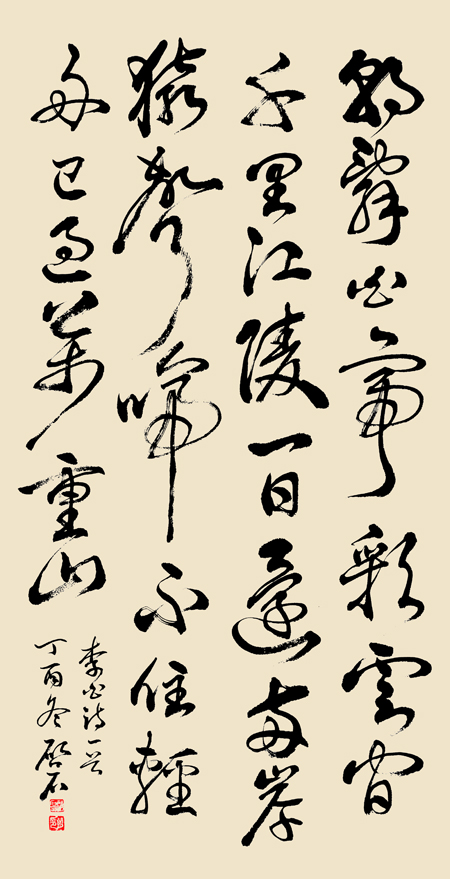 朝辭白帝彩雲間
千里江陵一日還兩岸
猿聲啼不住輕
舟已過萬重山
李白詩一首
丁酉冬啟石